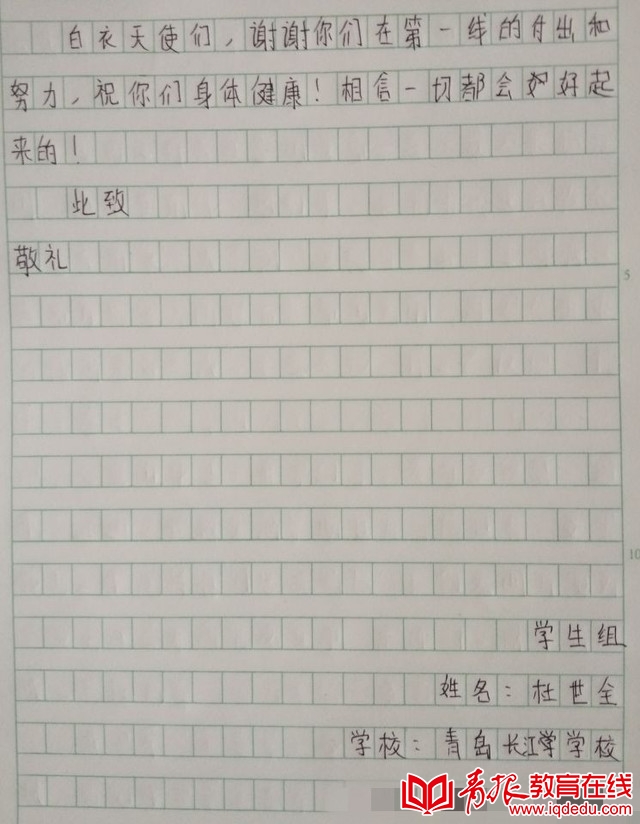 白衣天使们，谢谢你们在第一线的付出和
努力，祝你们身体健康！相信一切都会好好起
来的！
此致
敬礼
5
10
学生组
姓名：杜世全
学校：青岛长江学学校
青报教育在线
www.iqdedu.com